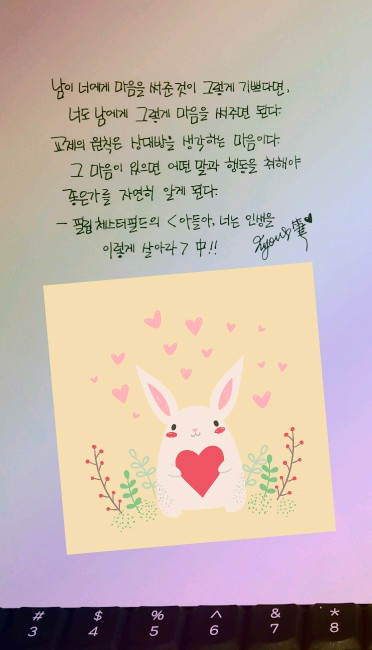 남이 너에게 마음을 써준 것이 그렇게 기쁘다면,
너도 남에게 그렇게 마음을 써주면 된다.
교제의 원칙은 상대방을 생각하는 마음이다.
그 마음이 있으면 어떤 말과 행동을 취해야
좋은가를 자연히 알게 된다.
- 필립 체스터필드의 <아들아, 너는 인생을
이렇게 살아라> 中!!
# $ % ^ & *
3 4 5 6 7 8